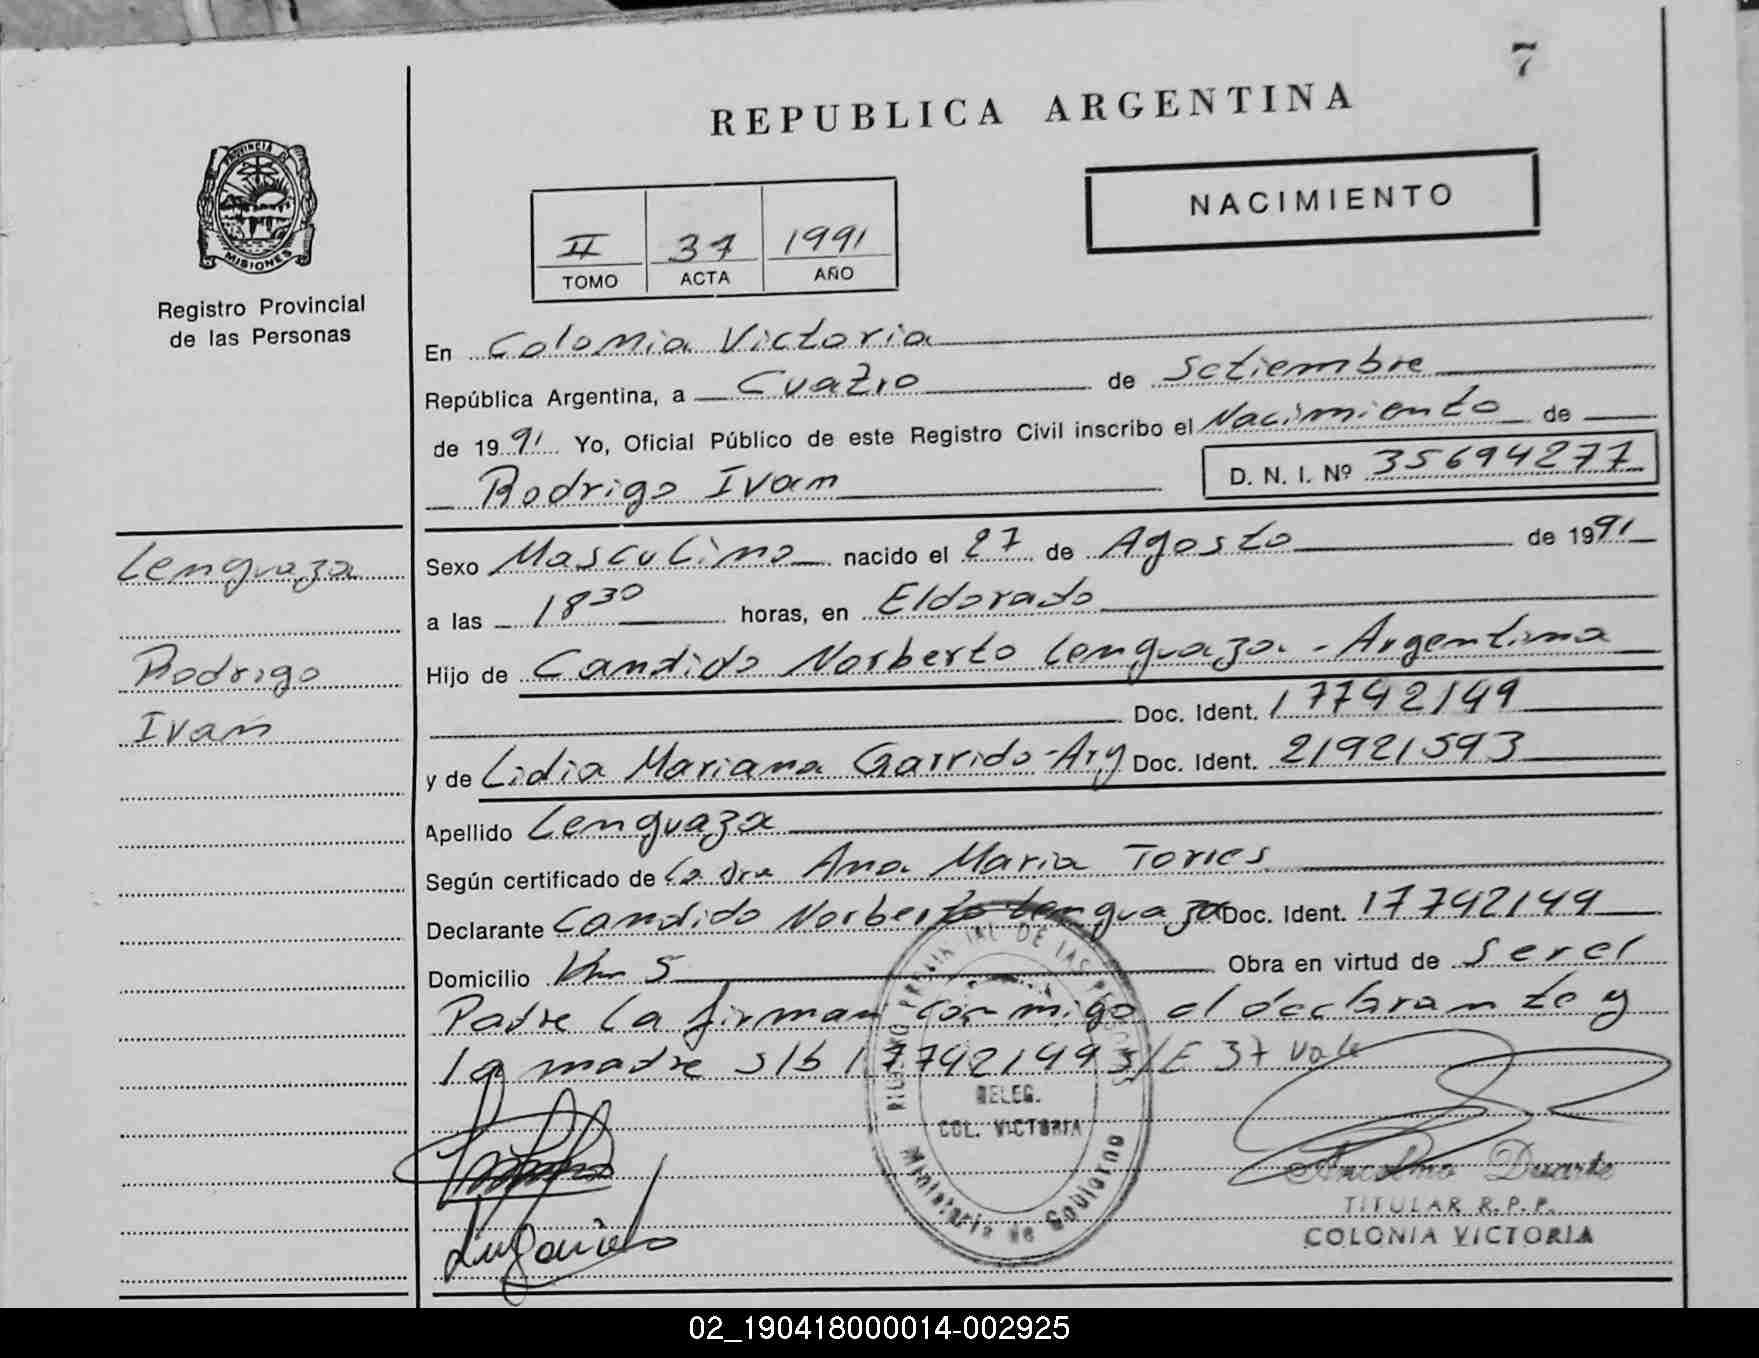 7
REPUBLICA ARGENTINA
NACIMIENTO
PROVINCIA DE
MISIONES
Registro Provincial
de las Personas
II 37 1991
TOMO ACTA AÑO
En Colonia Victoria
República Argentina, a Cuatro de Setiembre
de 1991 Yo, Oficial Público de este Registro Civil inscribo el Nacimiento de
Rodrigo Ivan D. N. I. Nº 35694277
Lenguaza
Rodrigo
Ivan
Sexo Masculino nacido el 27 de Agosto de 1991
a las 18 30 horas, en Eldorado
Hijo de Candido Norberto Lenguaza - Argentina
Doc. Ident. 17742149
y de Lidia Mariana Garrido - Arg Doc. Ident. 21921593
Apellido Lenguaza
Según certificado de la Dra Ana Maria Torres
Declarante Candido Norberto Lenguaza Doc. Ident. 17742149
Domicilio Km 5 Obra en virtud de ser el
Padre la firman conmigo el declarante y
la madre s/b 17742149 s/E 37 Vale
DE LAS PERSONAS
DELEG.
COL. VICTORIA
Ministerio de Gobierno
Anselmo Duarte
TITULAR R.P.P.
COLONIA VICTORIA
02_190418000014-002925